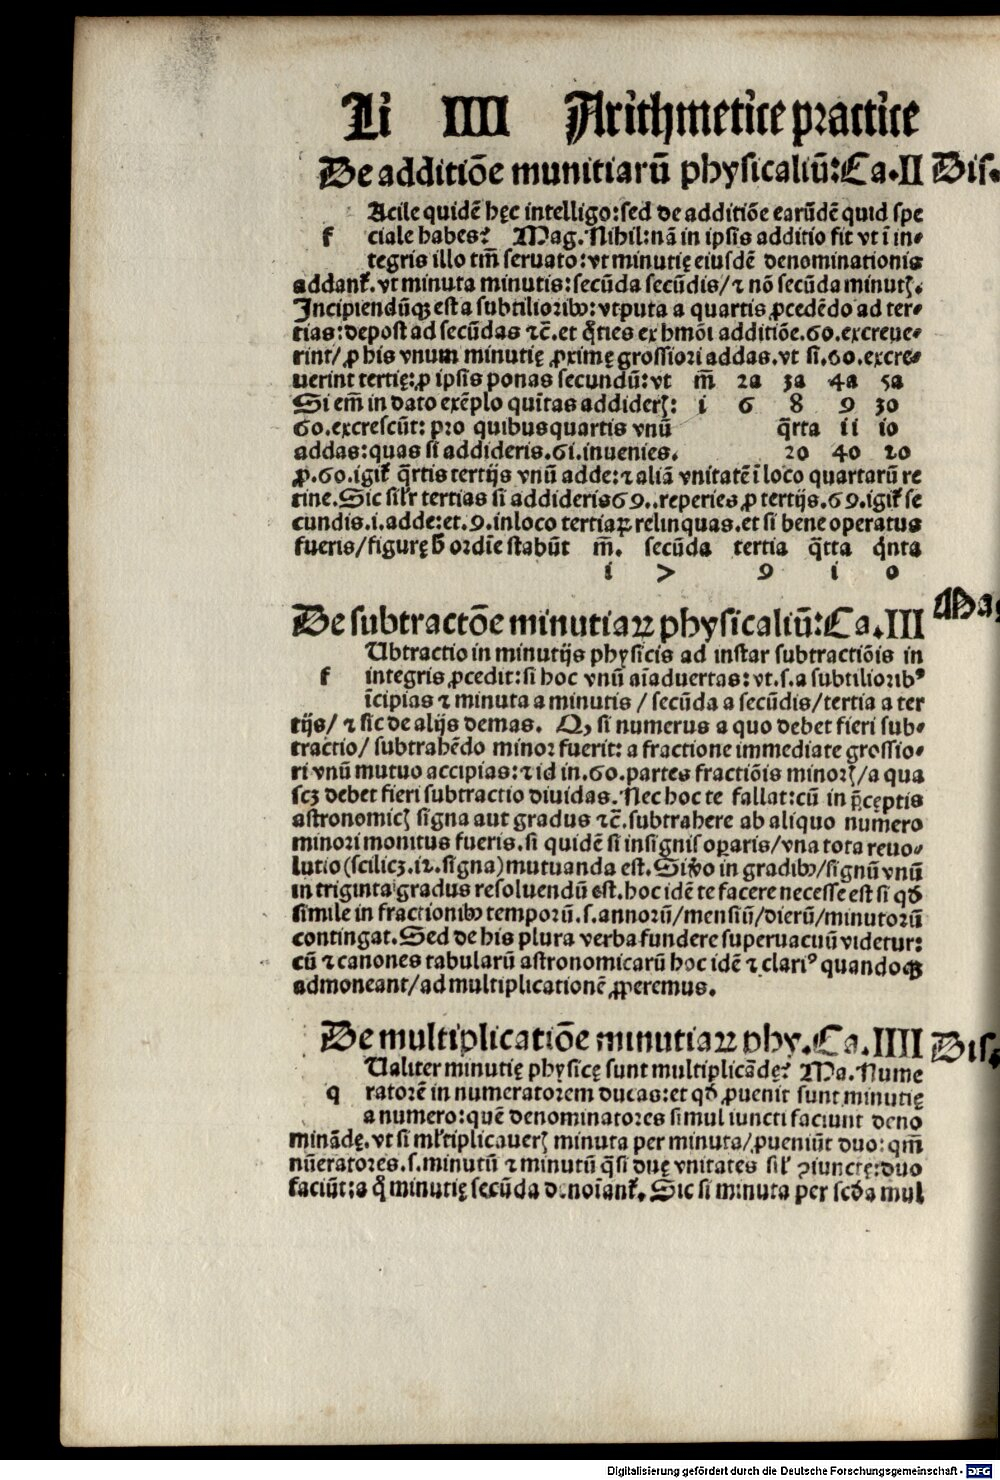 Li IIII Arithmetice practice
De additiõe munitiarũ physicaliũ: Ca. II Dis.
Acile quidẽ hęc intelligo: sed de additiõe earũdẽ quid spe
f ciale habes? Mag. Nihil: nã in ipsis additio fit vt ĩ in-
tegris illo tm̃ seruato: vt minutię eiusdẽ denominationis
addanẗ. vt minuta minutis: secũda secũdis/ ⁊ nõ secũda minutꝭ.
Incipiendũqꝫ est a subtilioribꝰ: vtputa a quartis ꝓcedẽdo ad ter-
tias: depost ad secũdas ⁊c̃. et q̊ties ex hmõi additiõe .60. excreue-
rint/ ꝓ his vnum minutię ꝓximę grossiori addas. vt si .60. excre-
uerint tertię: ꝓ ipsis ponas secundũ: vt m̃ 2a 3a 4a 5a
Si em̃ in dato exẽplo quĩtas addiderꝭ: i 6 8 9 30
60. excrescũt: pro quibus quartis vnũ q̃rta ii io
addas: quas si addideris .6i. inuenies. 20 40 20
ꝓ .60. igit̃ q̃rtis tertijs vnũ adde: ⁊ aliã vnitatẽ ĩ loco quartarũ re
tine. Sic sil'r tertias si addideris 69.. reperies ꝓ tertijs .69. igit̃ se
cundis .i. adde: et .9. in loco tertiaꝝ relinquas. et si bene operatus
fueris/ figurę h̃ ordĩe stabũt m̃. secũda tertia q̃rta q̊nta
i > 9 i 0
De subtractõe minutiaꝝ physicaliũ: Ca. III Mag
Ubtractio in minutijs physicis ad instar subtractiõis in
f integris ꝓcedit: si hoc vnũ aĩaduertas: vt .s. a subtiliorib⁹
ĩcipias ⁊ minuta a minutis / secũda a secũdis/ tertia a ter
tijs/ ⁊ sic de alijs demas. Qꝫ si numerus a quo debet fieri sub-
tractio/ subtrahẽdo minor fuerit: a fractione immediate grossio-
ri vnũ mutuo accipias: ⁊ id in .60. partes fractiõis minorꝭ/ a qua
scꝫ debet fieri subtractio diuidas. Nec hoc te fallat: cũ in p̃cęptis
astronomicꝭ signa aut gradus ⁊c̃. subtrahere ab aliquo numero
minori monitus fueris. si quidẽ si in signis oꝑaris/ vna tota reuo-
lutio (scilicꝫ .i2. signa) mutuanda est. Si v̊o in gradibꝰ/ signũ vnũ
in triginta gradus resoluendũ est. hoc idẽ te facere necesse est si qđ
simile in fractionibꝰ temporũ .s. annorũ/ mensiũ/ dierũ/ minutorũ
contingat. Sed de his plura verba fundere superuacuũ videtur:
cũ ⁊ canones tabularũ astronomicarũ hoc idẽ ⁊ clari⁹ quandoqꝫ
admoneant/ ad multiplicationẽ ꝓperemus.
De multiplicatiõe minutiaꝝ phy. Ca. IIII Dis.
Ualiter minutię physicę sunt multiplicãdę? Ma. Nume
q ratorẽ in numeratorem ducas: et qđ ꝓuenit sunt minutię
a numero: quẽ denominatores simul iuncti faciunt deno
minãdę. vt si ml'tiplicauerꝭ minuta per minuta/ ꝓueniũt duo: qm̃
nũeratores .s. minutũ ⁊ minutũ q̃si duę vnitates sil' ꝯiunctę: duo
faciũt: a q̊ minutię secũda denoĩant̃. Sic si minuta per scđa mul
Digitalisierung gefördert durch die Deutsche Forschungsgemeinschaft - DFG